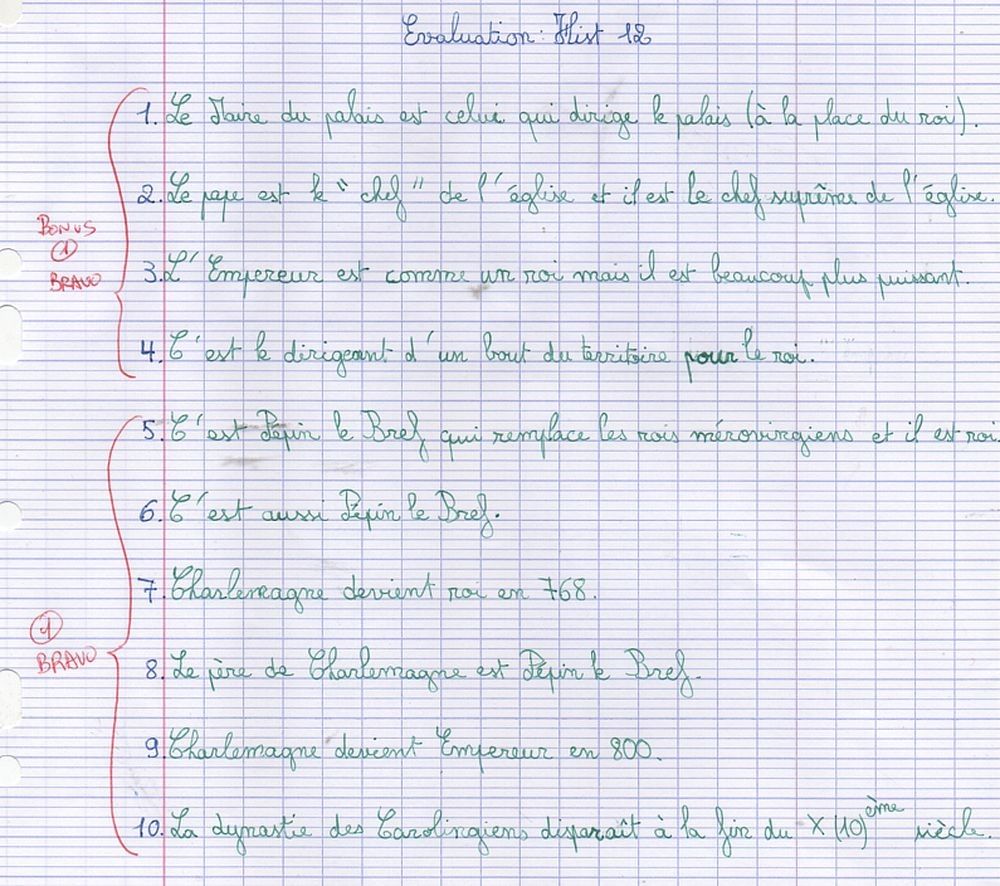 Evaluation: Hist 12
1. Le Maire du palais est celui qui dirige le palais (à la place du roi).
2. Le pape est le "chef" de l'église et il est le chef suprême de l'église.
BONUS
1
BRAVO
3. L'Empereur est comme un roi mais il est beaucoup plus puissant.
4. C'est le dirigeant d'un bout du territoire pour le roi.
5. C'est Pépin le Bref qui remplace les rois mérovingiens et il est roi.
6. C'est aussi Pépin le Bref.
7. Charlemagne devient roi en 768.
1
BRAVO
8. Le père de Charlemagne est Pépin le Bref.
9. Charlemagne devient Empereur en 800.
10. La dynastie des Carolingiens disparaît à la fin du X (10)ème siècle.